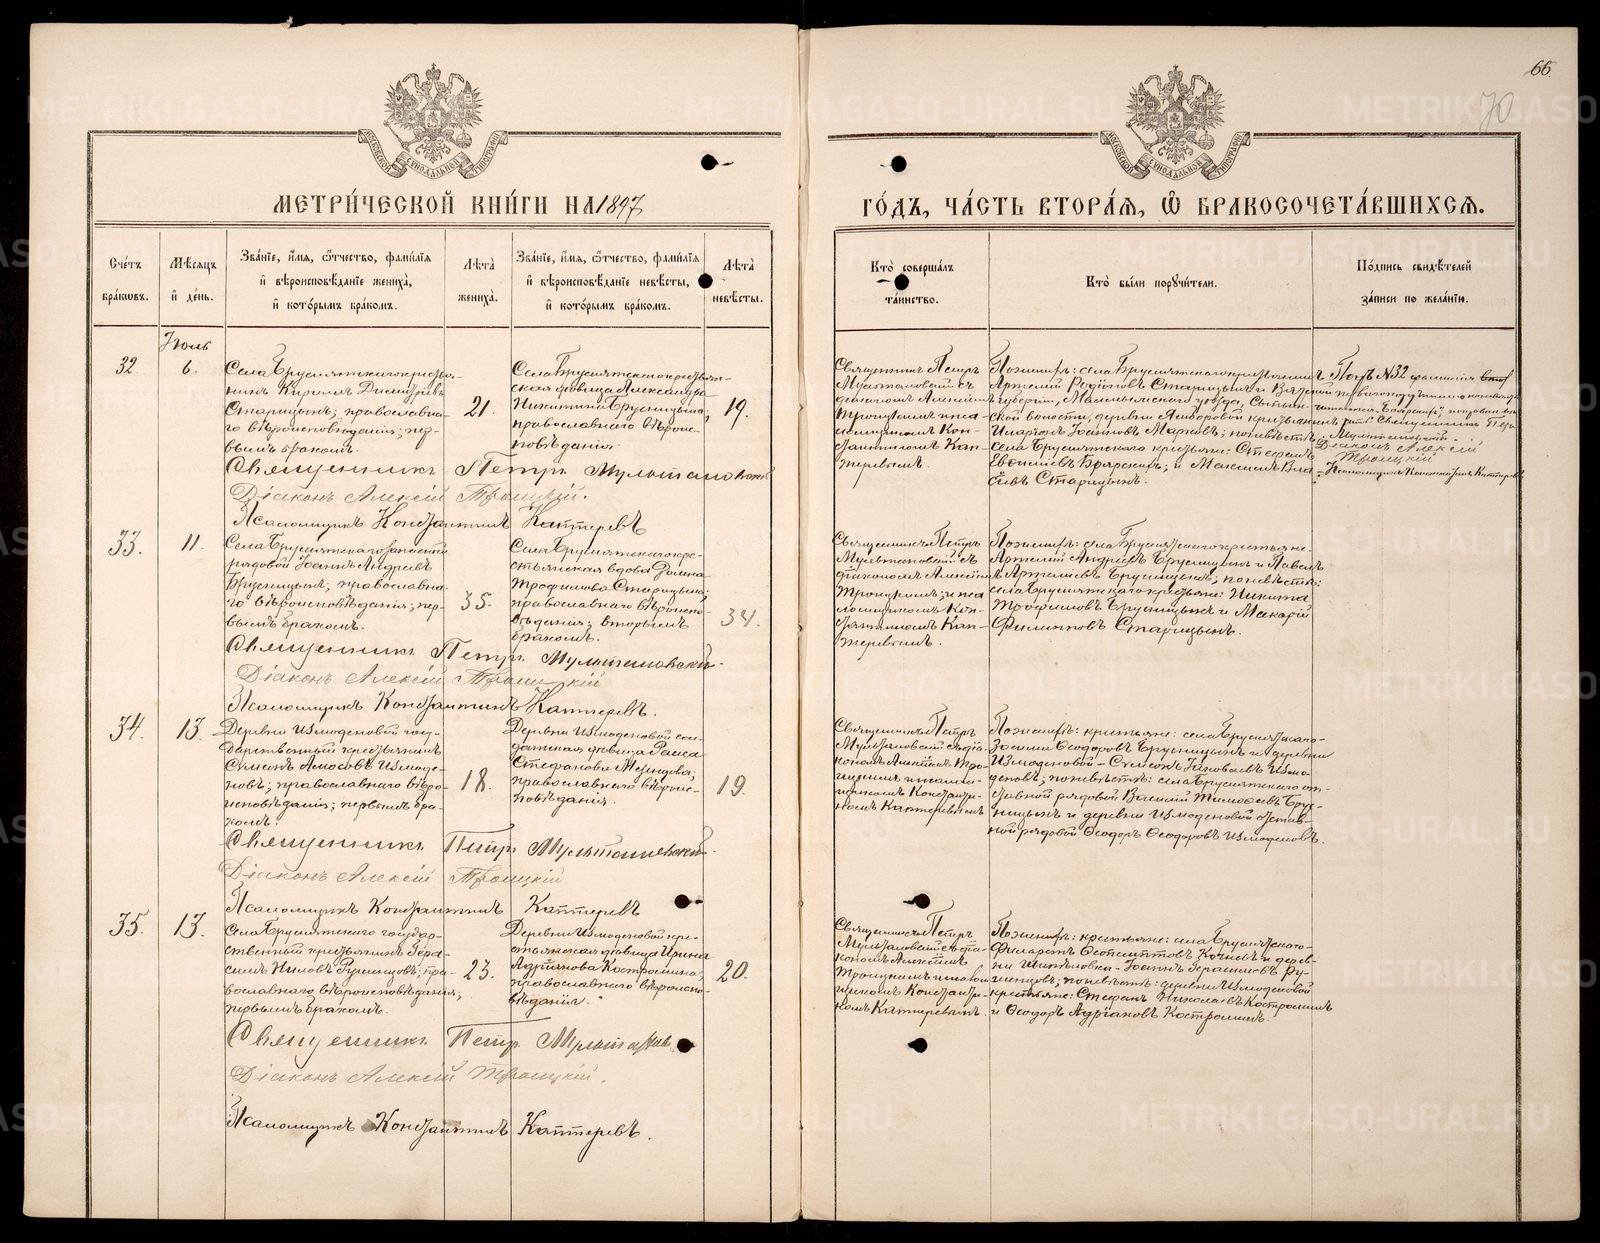 66
70
МОСКОВСКОЙ СУНОДАЛЬНОЙ ТИПОГРАФІИ
МОСКОВСКОЙ СУНОДАЛЬНОЙ ТИПОГРАФІИ
МЕТРИ́ЧЕСКОЙ КНИ́ГИ НА 1897
ГО́ДЪ, ЧА́СТЬ ВТОРА́Я, Ѽ БРАКОСОЧЕТА́ВШИХСЯ.
Сче́тъ
бра́ковъ.
Мѣ́сяцъ
и҆ де́нь.
Зва́нїе, и҆́мя, ѻ҆́тчество, фами́лїя
и҆ вѣроисповѣ́данїе жениха̀,
и҆ кото́рымъ бра́комъ.
Лѣ́та
жениха̀.
Зва́нїе, и҆́мя, ѻ҆́тчество, фами́лїя
и҆ вѣроисповѣ́данїе невѣ́сты,
и҆ кото́рымъ бра́комъ.
Лѣ́та
невѣ́сты.
Кто̀ соверша́лъ
та́инство.
Кто̀ бы́ли порꙋчи́тели.
По́дпись свидѣ́телей
за́писи по жела́нїю.
Іюль
32
6.
Села Брусятскаго крестья-
нинъ Кирилъ
Старицынъ; православна-
го вѣроисповѣданія; пер-
вымъ бракомъ.
21.
Села Брусятскаго крестьян-
ская дѣвица Александра
Никитина Брусницына,
православнаго вѣроис-
повѣданія.
19.
Священникъ Петръ
Мультановскій съ
діакономъ Алексіемъ
Троицкимъ и пса-
ломщикомъ Кон-
стантиномъ Кап-
теревымъ.
По женихѣ: села Брусятскаго крестьянинъ
Артемій Родіоновъ Старицынъ и Вятской
губерніи, Малмыжскаго уѣзда,
ской волости, деревни крестьянинъ
Іоанновъ Марковъ; по невѣстѣ:
села Брусятскаго крестьяне: Стефанъ
Боярскихъ; и Максимъ Вла-
Старицынъ.
Подъ №32 фамилія
Священникъ Петръ
Мультановскій.
Діаконъ Алексій
Троицкій
Псаломщикъ Константинъ Каптеревъ
Священникъ Петръ Мультановскій
Діаконъ Алексій Троицкій.
Псаломщикъ Константинъ Каптеревъ
33.
11.
Села Брусятскаго запасный
рядовой Іоаннъ Андреевъ
Брусницынъ; православна-
го вѣроисповѣданія; пер-
вымъ бракомъ.
35.
Села Брусятскаго кре-
стьянская вдова Домна
Трофимова Старицына;
православнаго вѣроиспо-
вѣданія; вторымъ
бракомъ.
34.
Священникъ Петръ
Мультановскій съ
діакономъ Алексіемъ
Троицкимъ и пса-
ломщикомъ Кон-
стантиномъ Кап-
теревымъ.
По женихѣ: села Брусятскаго крестьяне
Артемій Андреевъ Брусницынъ и Павелъ
Артемьевъ Брусницынъ; по невѣстѣ:
села Брусятскаго крестьяне: Никита
Трофимовъ Брусницынъ и Макарій
Филипповъ Старицынъ.
Священникъ Петръ Мультановскій.
Діаконъ Алексій Троицкій
Псаломщикъ Константинъ Каптеревъ.
34.
13.
Деревни Измоденовой госу-
дарственный крестьянинъ
Симеонъ Амосовъ Измоде-
новъ; православнаго вѣро-
исповѣданія; первымъ бра-
комъ.
18.
Деревни Измоденовой сол-
датская дѣвица Раиса
Стефанова
православнаго вѣроис-
повѣданія.
19.
Священникъ Петръ
Мультановскій съ діа-
кономъ Алексіемъ Тро-
ицкимъ и псалом-
щикомъ Константи-
номъ Каптеревымъ
По женихѣ: крестьяне: села Брусятскаго
Зосима Ѳеодоровъ Брусницынъ и деревни
Измоденовой - Симеонъ Измо-
деновъ; по невѣстѣ: села Брусятскаго от-
ставной рядовой Василій Тимоѳеевъ Брус-
ницынъ и деревни Измоденовой отстав-
ной рядовой Ѳеодоръ Ѳеодоровъ Измоденовъ.
Священникъ Петръ Мультановскій.
Діаконъ Алексій Троицкій
Псаломщикъ Константинъ Каптеревъ
35.
13.
Села Брусятскаго государ-
ственный крестьянинъ Гера-
симъ Ниловъ пра-
вославнаго вѣроисповѣданія;
первымъ бракомъ.
23.
Деревни Измоденовой кре-
стьянская дѣвица Ирина
Адріанова Костромина;
православнаго вѣроиспо-
вѣданія.
20.
Священникъ Петръ
Мультановскій съ діа-
кономъ Алексіемъ
Троицкимъ и псалом-
щикомъ Константи-
номъ Каптеревымъ.
По женихѣ: крестьяне: села Брусятскаго-
Филаретъ Кочневъ и дерев-
ни - Іоаннъ Герасимовъ
по невѣстѣ: деревни Измоденовой
крестьяне: Стефанъ Николаевъ Костроминъ
и Ѳеодоръ Адріановъ Костроминъ.
Священникъ Петръ
Діаконъ Алексій Троицкій.
Псаломщикъ Константинъ Каптеревъ.
METRIKI.GASO-URAL.RU